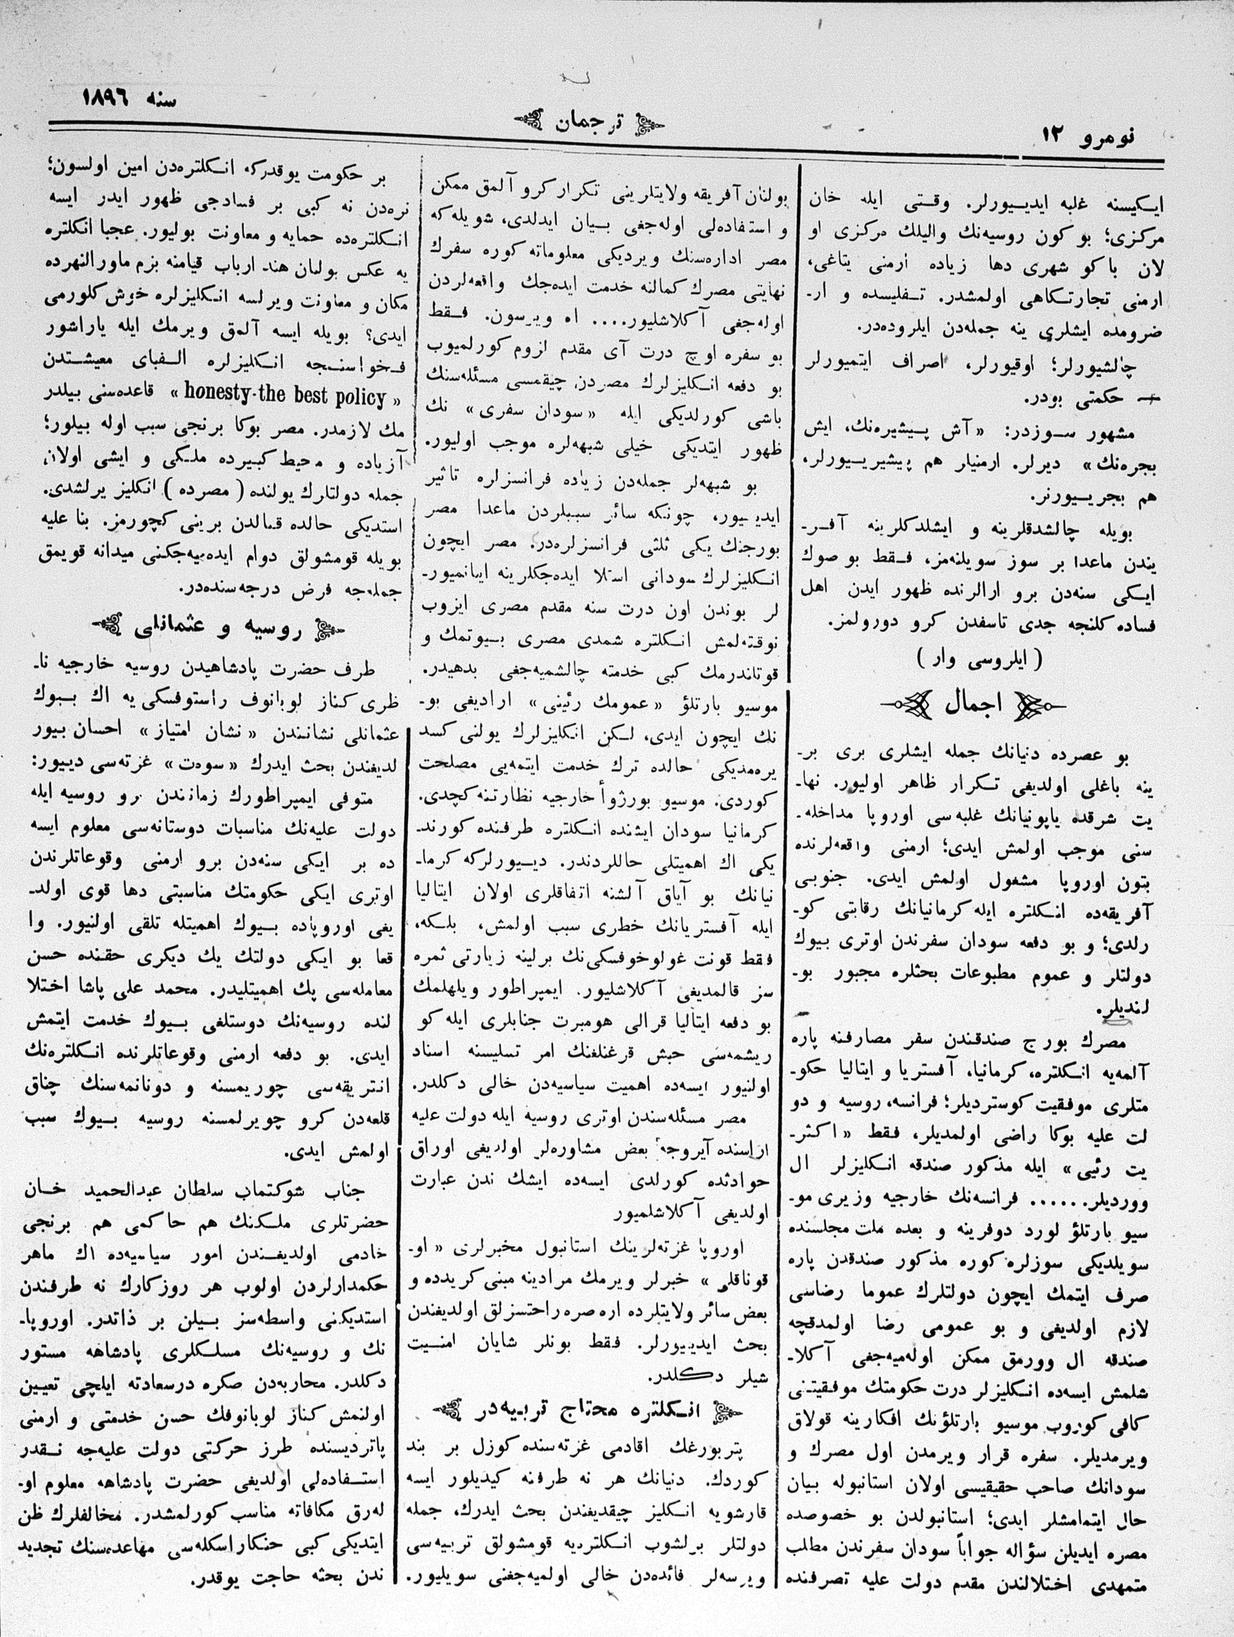 نومرو ١٢
ترجمان
سنه ١٨٩٦
ایكیسنه غلبه ایدییورلر. وقتی ایله خان
مركزی؛ بوكون روسیه‌نك والیلك مركزی او
لان باكو شهری دها زیاده ارمنی یتاغی،
ارمنی تجارتكاهی اولمشدر. تفلیسده و ار-
ضرومده ایشلری ینه جمله‌دن ایلروده‌در.
چالشیورلر؛ اوقیورلر، اصراف ایتمیورلر
— حكمتی بودر.
مشهور سوزدر: «آش پیشیره‌نك، ایش
بجره‌نك» دیرلر. ارمنیلر هم پیشیرییورلر،
هم بجرییورلر.
بویله چالشدقلرینه و ایشلدكلرینه آفر-
یندن ماعدا بر سوز سویلنه‌مز، فقط بو صوك
ایكی سنه‌دن برو ارالرنده ظهور ایدن اهل
فساده كلنجه جدی تاسفدن كرو دورولمز.
(ایلروسی وار)
اجمال
بو عصرده دنیانك جمله ایشلری بری بر-
ینه باغلی اولدیغی تكرار ظاهر اولیور. نها-
یت شرقده یاپونیانك غلبه‌سی اوروپا مداخله-
سنی موجب اولمش ایدی؛ ارمنی واقعه‌لرنده
بتون اوروپا مشغول اولمش ایدی. جنوبی
آفریقه‌ده انكلتره ایله كرمانیانك رقابتی كو-
رلدی؛ و بو دفعه سودان سفرندن اوتری بیوك
دولتلر و عموم مطبوعات بحثلره مجبور بو-
لندیلر.
مصرك بورج صندقندن سفر مصارفنه پاره
آلمه‌یه انكلتره، كرمانیا، آفستریا و ایتالیا حكو-
متلری موفقیت كوستردیلر؛ فرانسه، روسیه و دو
لت علیه بوكا راضی اولمدیلر، فقط «اكثر-
یت رئیی» ایله مذكور صندقه انكلیزلر ال
ووردیلر...... فرانسه‌نك خارجیه وزیری مو-
سیو بارتلؤ لورد دوفرینه و بعده ملت مجلسنده
سویلدیكی سوزلره كوره مذكور صندقدن پاره
صرف ایتمك ایچون دولتلرك عموما رضاسی
لازم اولدیغی و بو عمومی رضا اولمدقچه
صندقه ال وورمق ممكن اوله‌میه‌جغی آكلا-
شلمش ایسه‌ده انكلیزلر درت حكومتك موفقیتنی
كافی كوروب موسیو بارتلؤنك افكارینه قولاق
ویرمدیلر. سفره قرار ویرمدن اول مصرك و
سودانك صاحب حقیقیسی اولان استانبوله بیان
حال ایتمامشلر ایدی؛ استانبولدن بو خصوصده
مصره ایدیلن سؤاله جواباً سودان سفرندن مطلب
متمهدی اختلالندن مقدم دولت علیه تصرفنده
بولنان آفریقه ولایتلرینی تكرار كرو آلمق ممكن
و استفاده‌لی اوله‌جغی بیان ایدلدی، شویله‌كه
مصر اداره‌سنك ویردیكی معلوماته كوره سفرك
نهایتی مصرك كمالنه خدمت ایده‌جك واقعه‌لردن
اوله‌جغی آكلاشلیور.... اه ویرسون. فقط
بو سفره اوچ درت آی مقدم لزوم كورلمیوب
بو دفعه انكلیزلرك مصردن چیقمسی مسئله‌سنك
باشی كورلدیكی ایله «سودان سفری» نك
ظهور ایتدیكی خیلی شبهه‌لره موجب اولیور.
بو شبهه‌لر جمله‌دن زیاده فرانسزلره تاثیر
ایدییور، چونكه سائر سببلردن ماعدا مصر
بورجنك یكی ثلثی فرانسزلره‌در. مصر ایچون
انكلیزلرك سودانی استلا ایده‌جكلرینه اینانمیور-
لر بوندن اون درت سنه مقدم مصری ایزوب
نوقته‌لمش انكلتره شمدی مصری بیوتمك و
قوتاندرمك كبی خدمته چالشمیه‌جغی بدهیدر.
موسیو بارتلؤ «عمومك رئینی» ارادیغی بو-
نك ایچون ایدی، لكن انكلیزلرك یولنی كسد
یره‌مدیكی حالده ترك خدمت ایتمه‌یی مصلحت
كوردی. موسیو بورژوأ خارجیه نظارتنه كچدی.
كرمانیا سودان ایشنده انكلتره طرفنده كورند-
یكی اك اهمیتلی حاللردندر. دییورلركه كرما-
نیانك بو آیاق آلشنه اتفاقلری اولان ایتالیا
ایله آفستریانك خطری سبب اولمش، بلكه،
فقط قونت غولوخوفسكی‌نك برلینه زیارتی ثمره
سز قالمدیغی آكلاشلیور. ایمپراطور ویلهلمك
بو دفعه ایتالیا قرالی هومبرت جنابلری ایله كو
ریشمه‌سی حبش قرغنلغنك امر تسلیسنه اسناد
اولنیور ایسه‌ده اهمیت سیاسیه‌دن خالی دكلدر.
مصر مسئله‌سندن اوتری روسیه ایله دولت علیه
اراسنده آیروجه بعض مشاوره‌لر اولدیغی اوراق
حوادثده كورلدی ایسه‌ده ایشك ندن عبارت
اولدیغی آكلاشلمیور
اوروپا غزته‌لرینك استانبول مخبرلری «او-
قوناقلی» خبرلر ویرمك مرادینه مبنی كریدده و
بعض سائر ولایتلرده اره صره راحتسزلق اولدیغندن
بحث ایدییورلر. فقط بونلر شایان امنیت
شیلر دكلدر.
انكلتره محتاج تربیه‌در
پتربورغك اقادمی غزته‌سنده كوزل بر بند
كوردك. دنیانك هر نه طرفنه كیدیلور ایسه
قارشویه انكلیز چیقدیغندن بحث ایدرك، جمله
دولتلر برلشوب انكلتره‌یه قومشولق تربیه‌سی
ویرسه‌لر فائده‌دن خالی اولمیه‌جغنی سویلیور.
بر حكومت یوقدركه انكلتره‌دن امین اولسون؛
نره‌دن نه كبی بر فسادجی ظهور ایدر ایسه
انكلتره‌ده حمایه و معاونت بولیور. عجبا انكلتره
یه عكس بولنان هند ارباب قیامنه بزم ماورالنهرده
مكان و معاونت ویرلسه انكلیزلره خوش كلورمی
ایدی؟ بویله ایسه آلمق ویرمك ایله یاراشور
فحواسنجه انكلیزلره الفبای معیشتدن
«honesty-the best policy» قاعده‌سنی بیلدر
مك لازمدر. مصر بوكا برنجی سبب اوله بیلور؛
آزیاده و محیط كبیرده ملكی و ایشی اولان
جمله دولتلرك یولنده (مصرده) انكلیز یرلشدی.
استدیكی حالده قنالدن برینی كچورمز. بنا علیه
بویله قومشولق دوام ایده‌میه‌جكنی میدانه قویمق
جمله‌جه فرض درجه‌سنده‌در.
روسیه و عثمانلی
طرف حضرت پادشاهیدن روسیه خارجیه نا-
ظری كناز لوبانوف راستوفسكی یه اك بیوك
عثمانلی نشانندن «نشان امتیاز» احسان بیور
لدیغندن بحث ایدرك «سوه‌ت» غزته‌سی دییور:
متوفی ایمپراطورك زماندن برو روسیه ایله
دولت علیه‌نك مناسبات دوستانه‌سی معلوم ایسه
ده بر ایكی سنه‌دن برو ارمنی وقوعاتلرندن
اوتری ایكی حكومتك مناسبتی دها قوی اولد-
یغی اوروپاده بیوك اهمیتله تلقی اولنیور. وا
قعا بو ایكی دولتك یك دیكری حقنده حسن
معامله‌سی پك اهمیتلیدر. محمد علی پاشا اختلا
لنده روسیه‌نك دوستلغی بیوك خدمت ایتمش
ایدی. بو دفعه ارمنی وقوعاتلرنده انكلتره‌نك
انتریقه‌سی چوریمسنه و دونانمه‌سنك چناق
قلعه‌دن كرو چویرلمسنه روسیه بیوك سبب
اولمش ایدی.
جناب شوكتماب سلطان عبدالحمید خان
حضرتلری ملكنك هم حاكمی هم برنجی
خادمی اولدیغندن امور سیاسیه‌ده اك ماهر
حكمدارلردن اولوب هر روزكارك نه طرفندن
استدیكنی واسطه‌سز بیلن بر ذاتدر. اوروپا-
نك و روسیه‌نك مسلكلری پادشاهه مستور
دكلدر. محاربه‌دن صكره درسعادته ایلچی تعیین
اولنمش كناز لوبانوفك حسن خدمتی و ارمنی
پاتردیسنده طرز حركتی دولت علیه‌جه نقدر
استفاده‌لی اولدیغی حضرت پادشاهه معلوم او-
له‌رق مكافاته مناسب كورلمشدر. مخالفلرك ظن
ایتدیكی كبی حنكار اسكله‌سی معاهده‌سنك تجدید
ندن بحثه حاجت یوقدر.